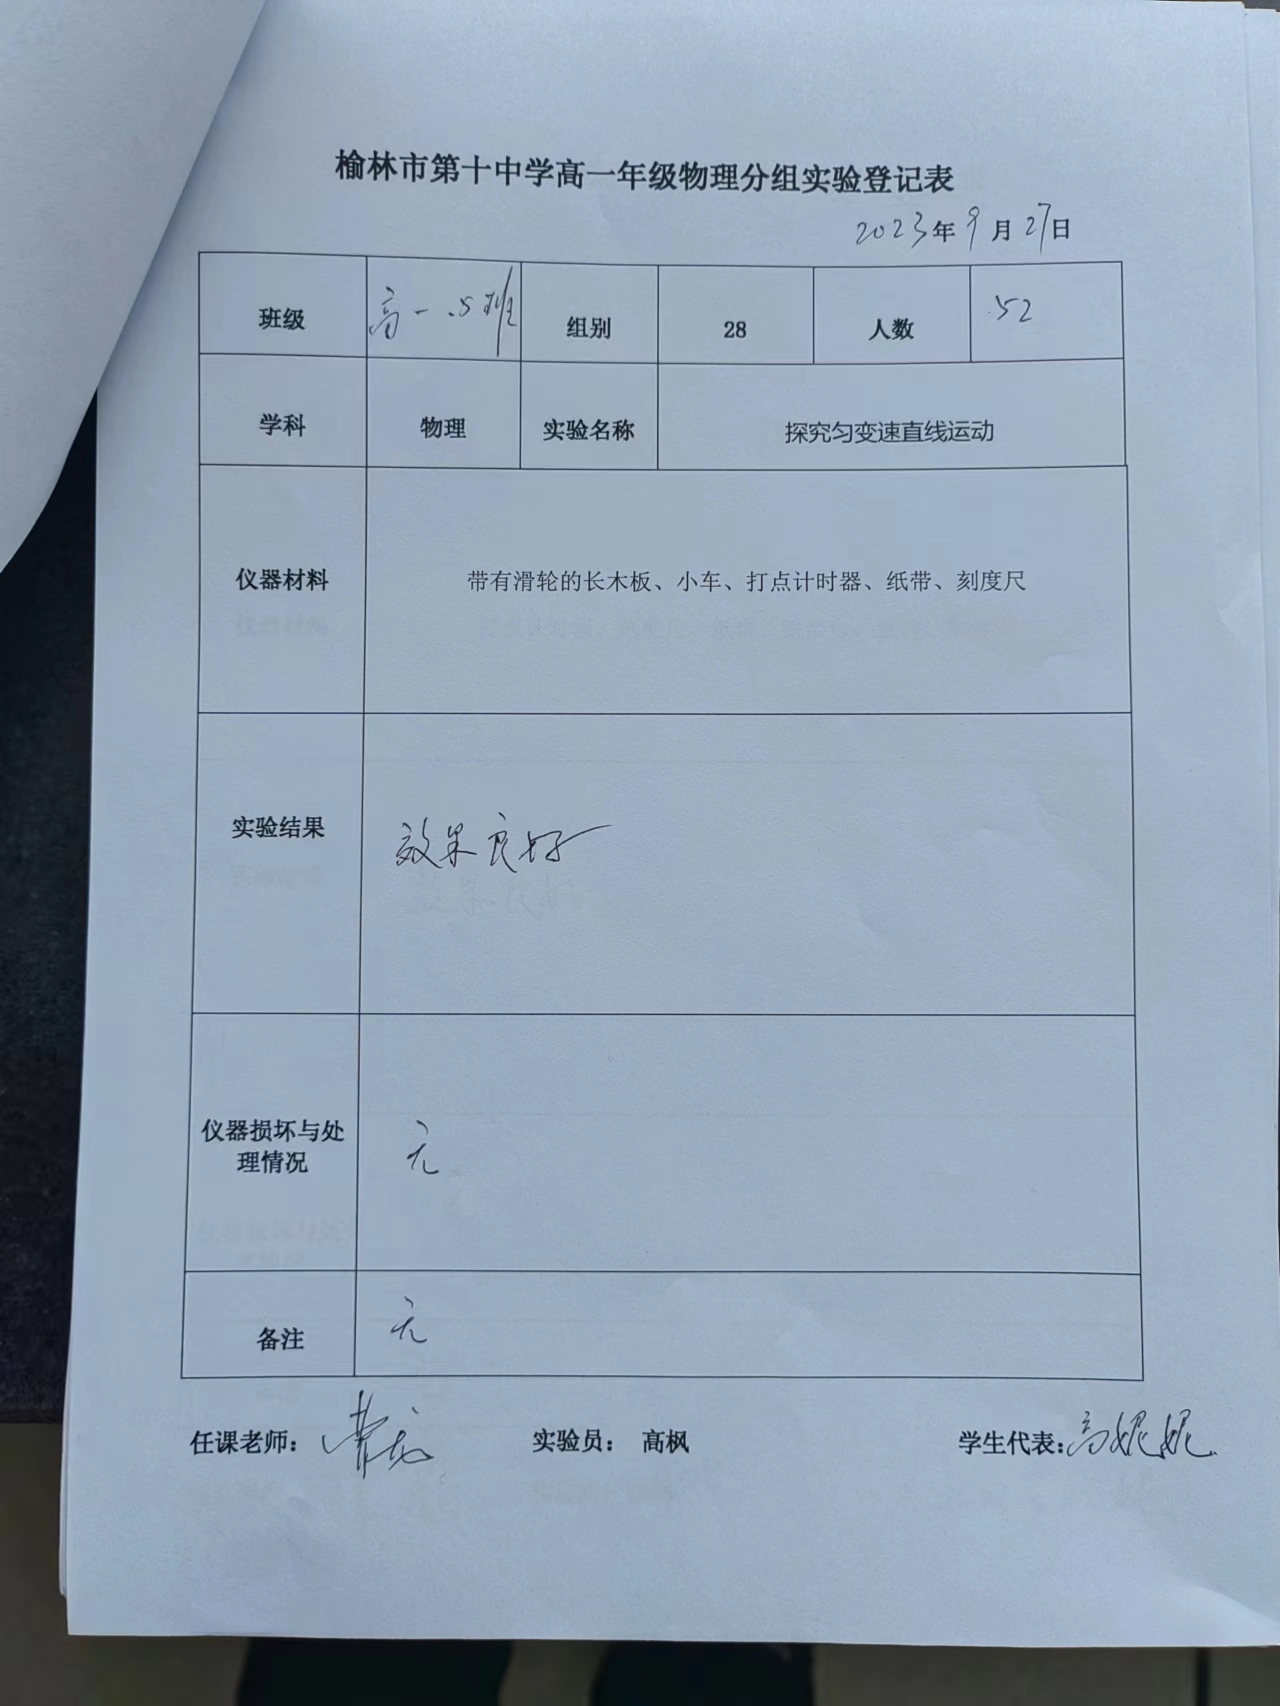 榆林市第十中学高一年级物理分组实验登记表
2023年9月27日
班级 高一.5班 组别 28 人数 52
学科 物理 实验名称 探究匀变速直线运动
仪器材料 带有滑轮的长木板、小车、打点计时器、纸带、刻度尺
实验结果 效果良好
仪器损坏与处
理情况 无
备注 无
任课老师： 实验员： 高枫 学生代表:高妮妮